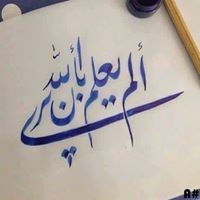 ألم يعلم بأن الله يرى
A#